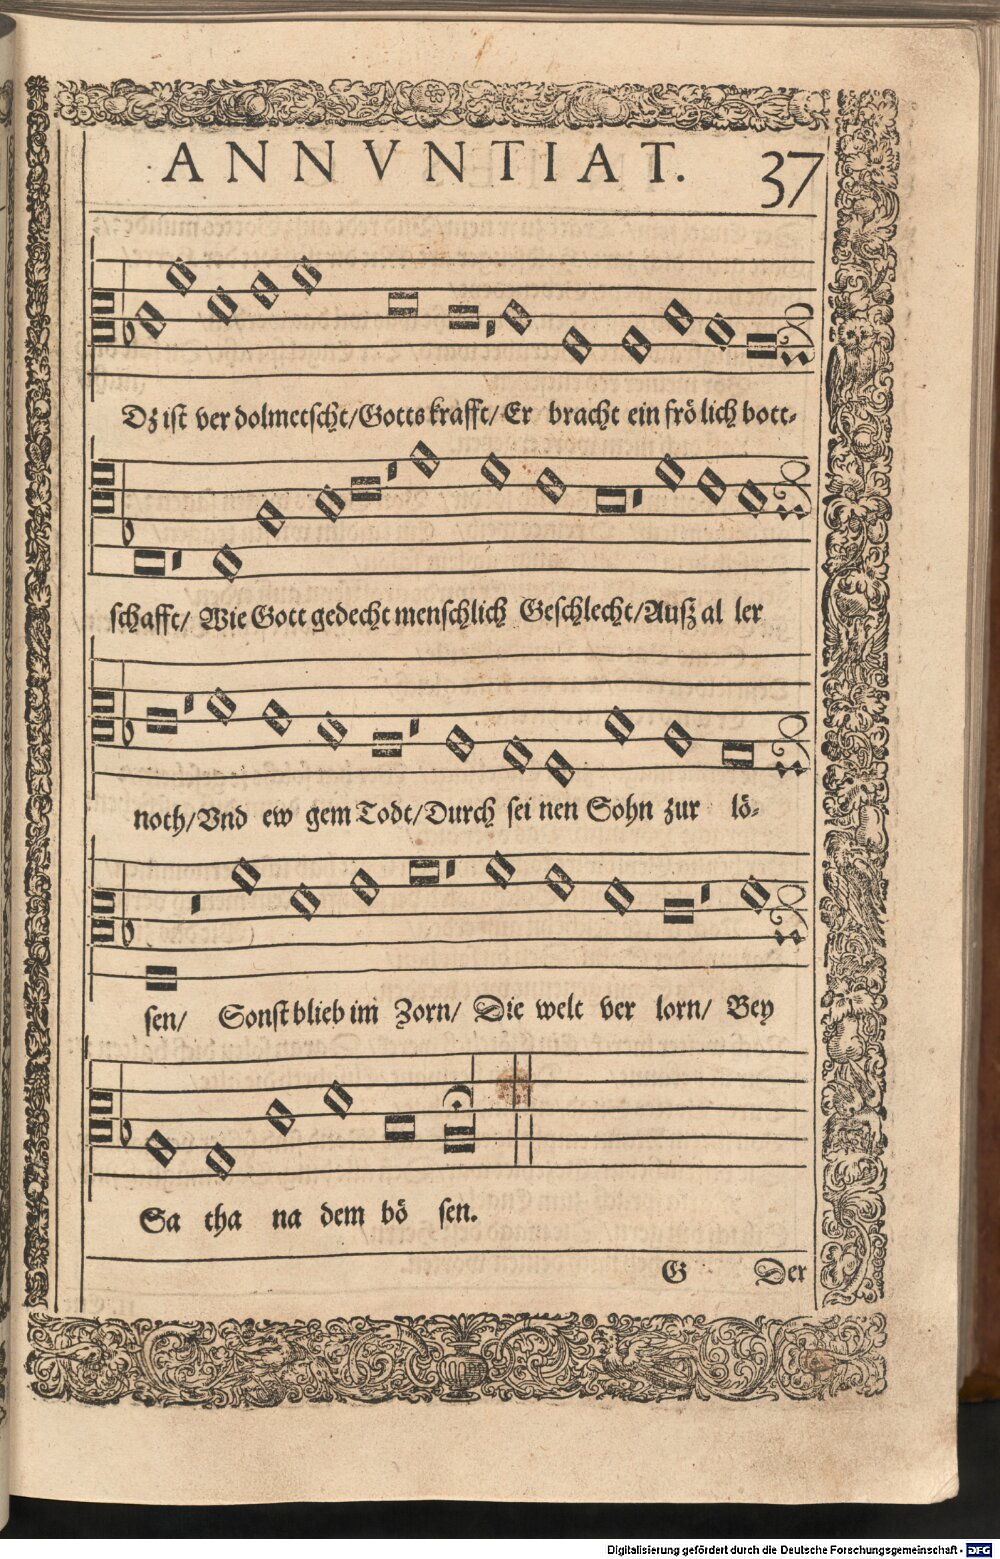 ANNVNTIAT. 37
Dz ist ver dolmetscht/Gotts krafft/Er bracht ein frö lich bott-
schafft/ Wie Gott gedecht menschlich Geschlecht/Auß al ler
noth/Vnd ew gem Todt/Durch sei nen Sohn zur lö-
sen/ Sonst blieb im Zorn/ Die welt ver lorn/ Bey
Sa tha na dem bö sen.
G Der
Digitalisierung gefördert durch die Deutsche Forschungsgemeinschaft - DFG